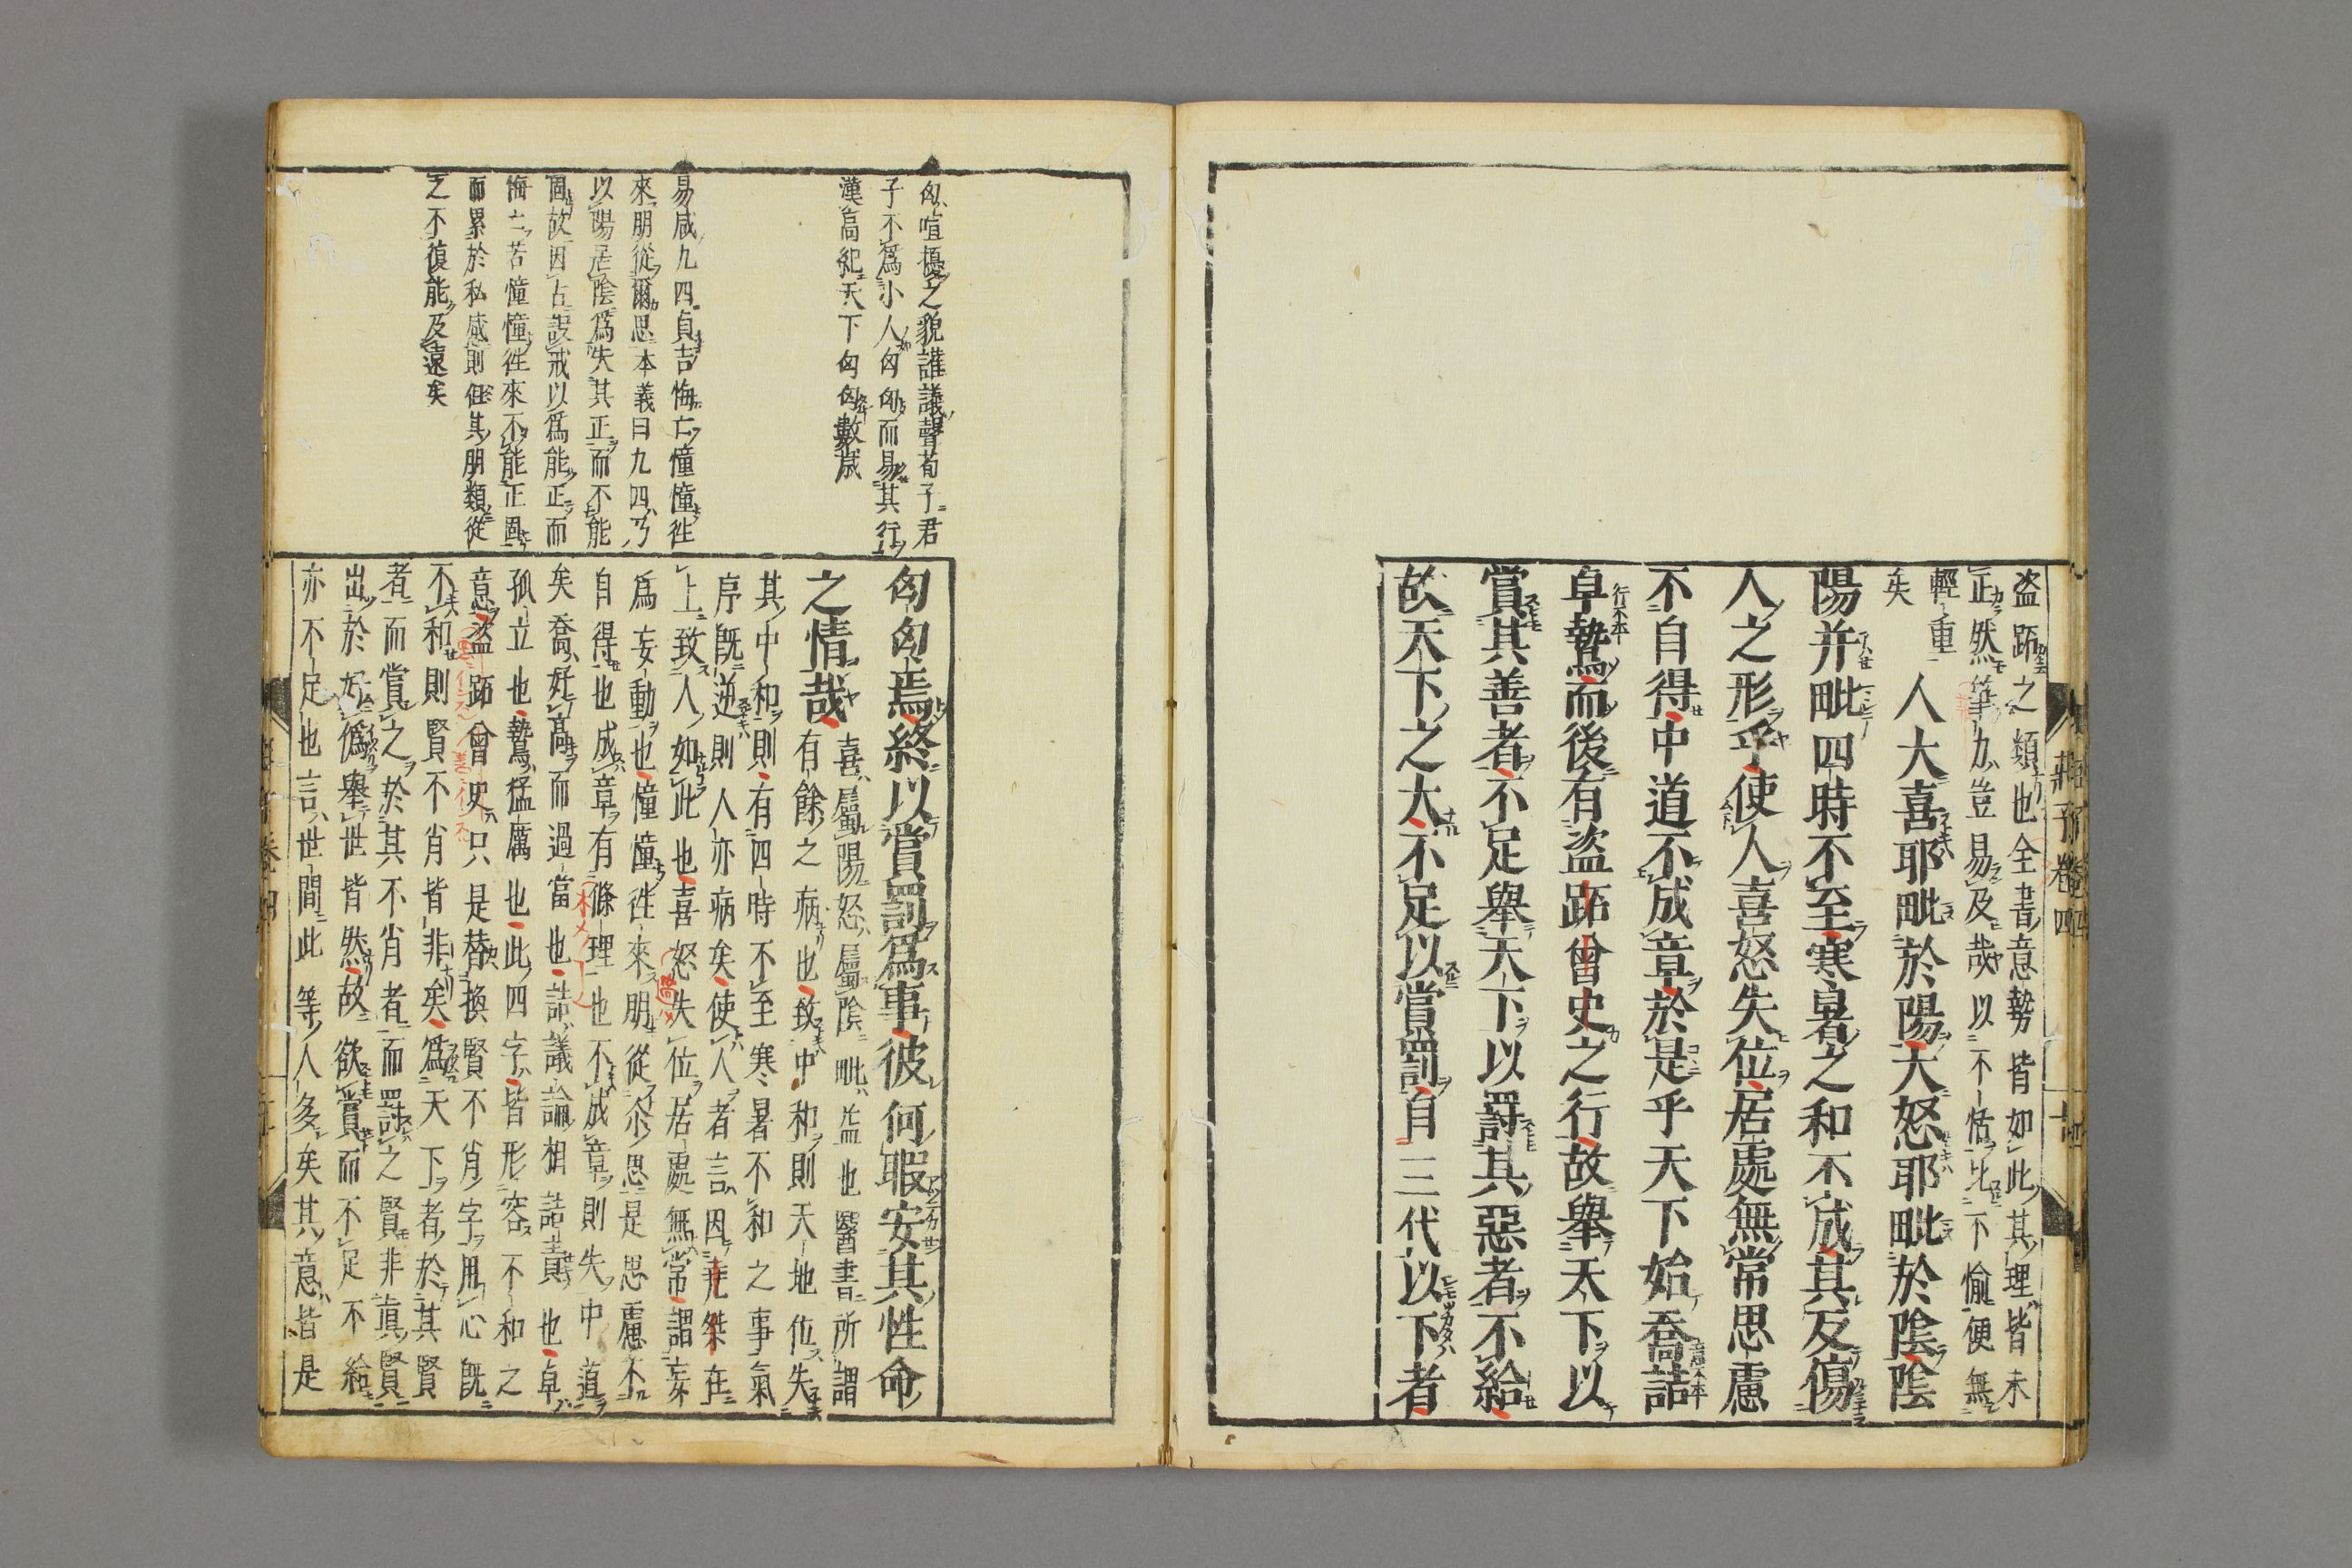 盜跖之類也全書意勢皆如此其理皆未
正然筆力豈易及哉以不恬比不愉便無
輕重
矣
人大喜耶毗於陽大怒耶毗於陰陰
陽并毗四時不至寒暑之和不成其反傷
人之形乎使人喜怒失位居處無常思慮
不自得中道不成章於是乎天下始喬詰
卓鷙而後有盜跖曾史之行故舉天下以
賞其善者不足舉天下以罰其惡者不給
故天下之大不足以賞罰自三代以下者
匈喧擾之貌誰議聲荀子君
子不爲小人匈匈而易其行
漢高紀天下匈匈數歲
易咸九四貞吉悔亡憧憧徃
來朋從爾思本義曰九四乃
以陽居陰爲失其正而不能
固故因占設戒以爲能正而
悔亡若憧憧徃來不能正固
而累於私感則但其朋類從
之不復能及遠矣
匈匈焉終以賞罰爲事彼何暇安其性命
之情哉
喜屬陽怒屬陰毗益也醫書所謂
有餘之病也致中和則天地位失
其中和則有四時不至寒暑不和之事氣
序旣逆則人亦病矣使人者言因堯桀在
上致人如此也喜怒失位居處無常謂妄
爲妄動也憧憧徃來朋從尒思是思慮不
自得也成章有條理也不成章則失中道
矣喬好高而過當也詰議論相詰責也卓
孤立也鷙猛厲也此四字皆形容不和之
意盜跖曾史只是替換賢不肖字用心旣
不和則賢不肖皆非矣爲天下者於其賢
者而賞之於其不肖者而罰之賢非真賢
出於好僞舉世皆然故欲賞而不足不給
亦不足也言世間此等人多矣其意皆是
莊子卷四